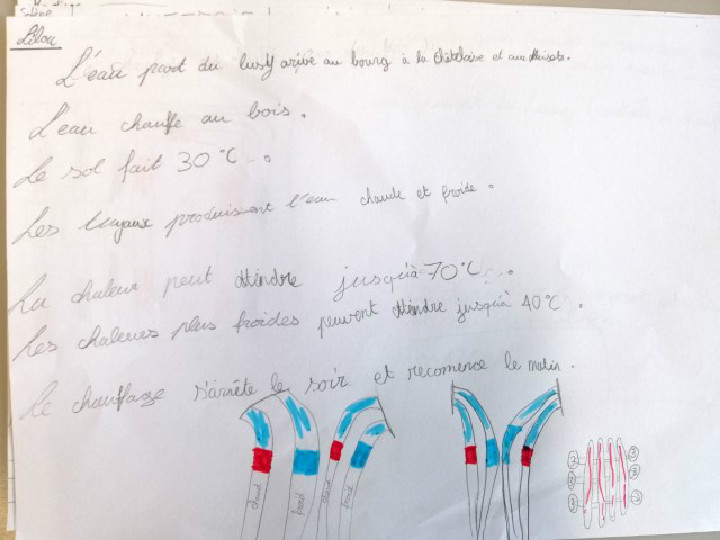 Lilou
L'eau part du lusy arive au bourg à la Châtelaise et aux
L'eau chaufe au bois.
Le sol fait 30°C.
Les tuyaux produissent l'eau chaude et froide.
La chaleur peut atteindre jusqu'à 70°C.
Les chaleurs plus froides peuvent atteindre jusqu'à 40°C.
Le chauffage s'arrête le soir et recomence le matin.
chaud froid chaud froid